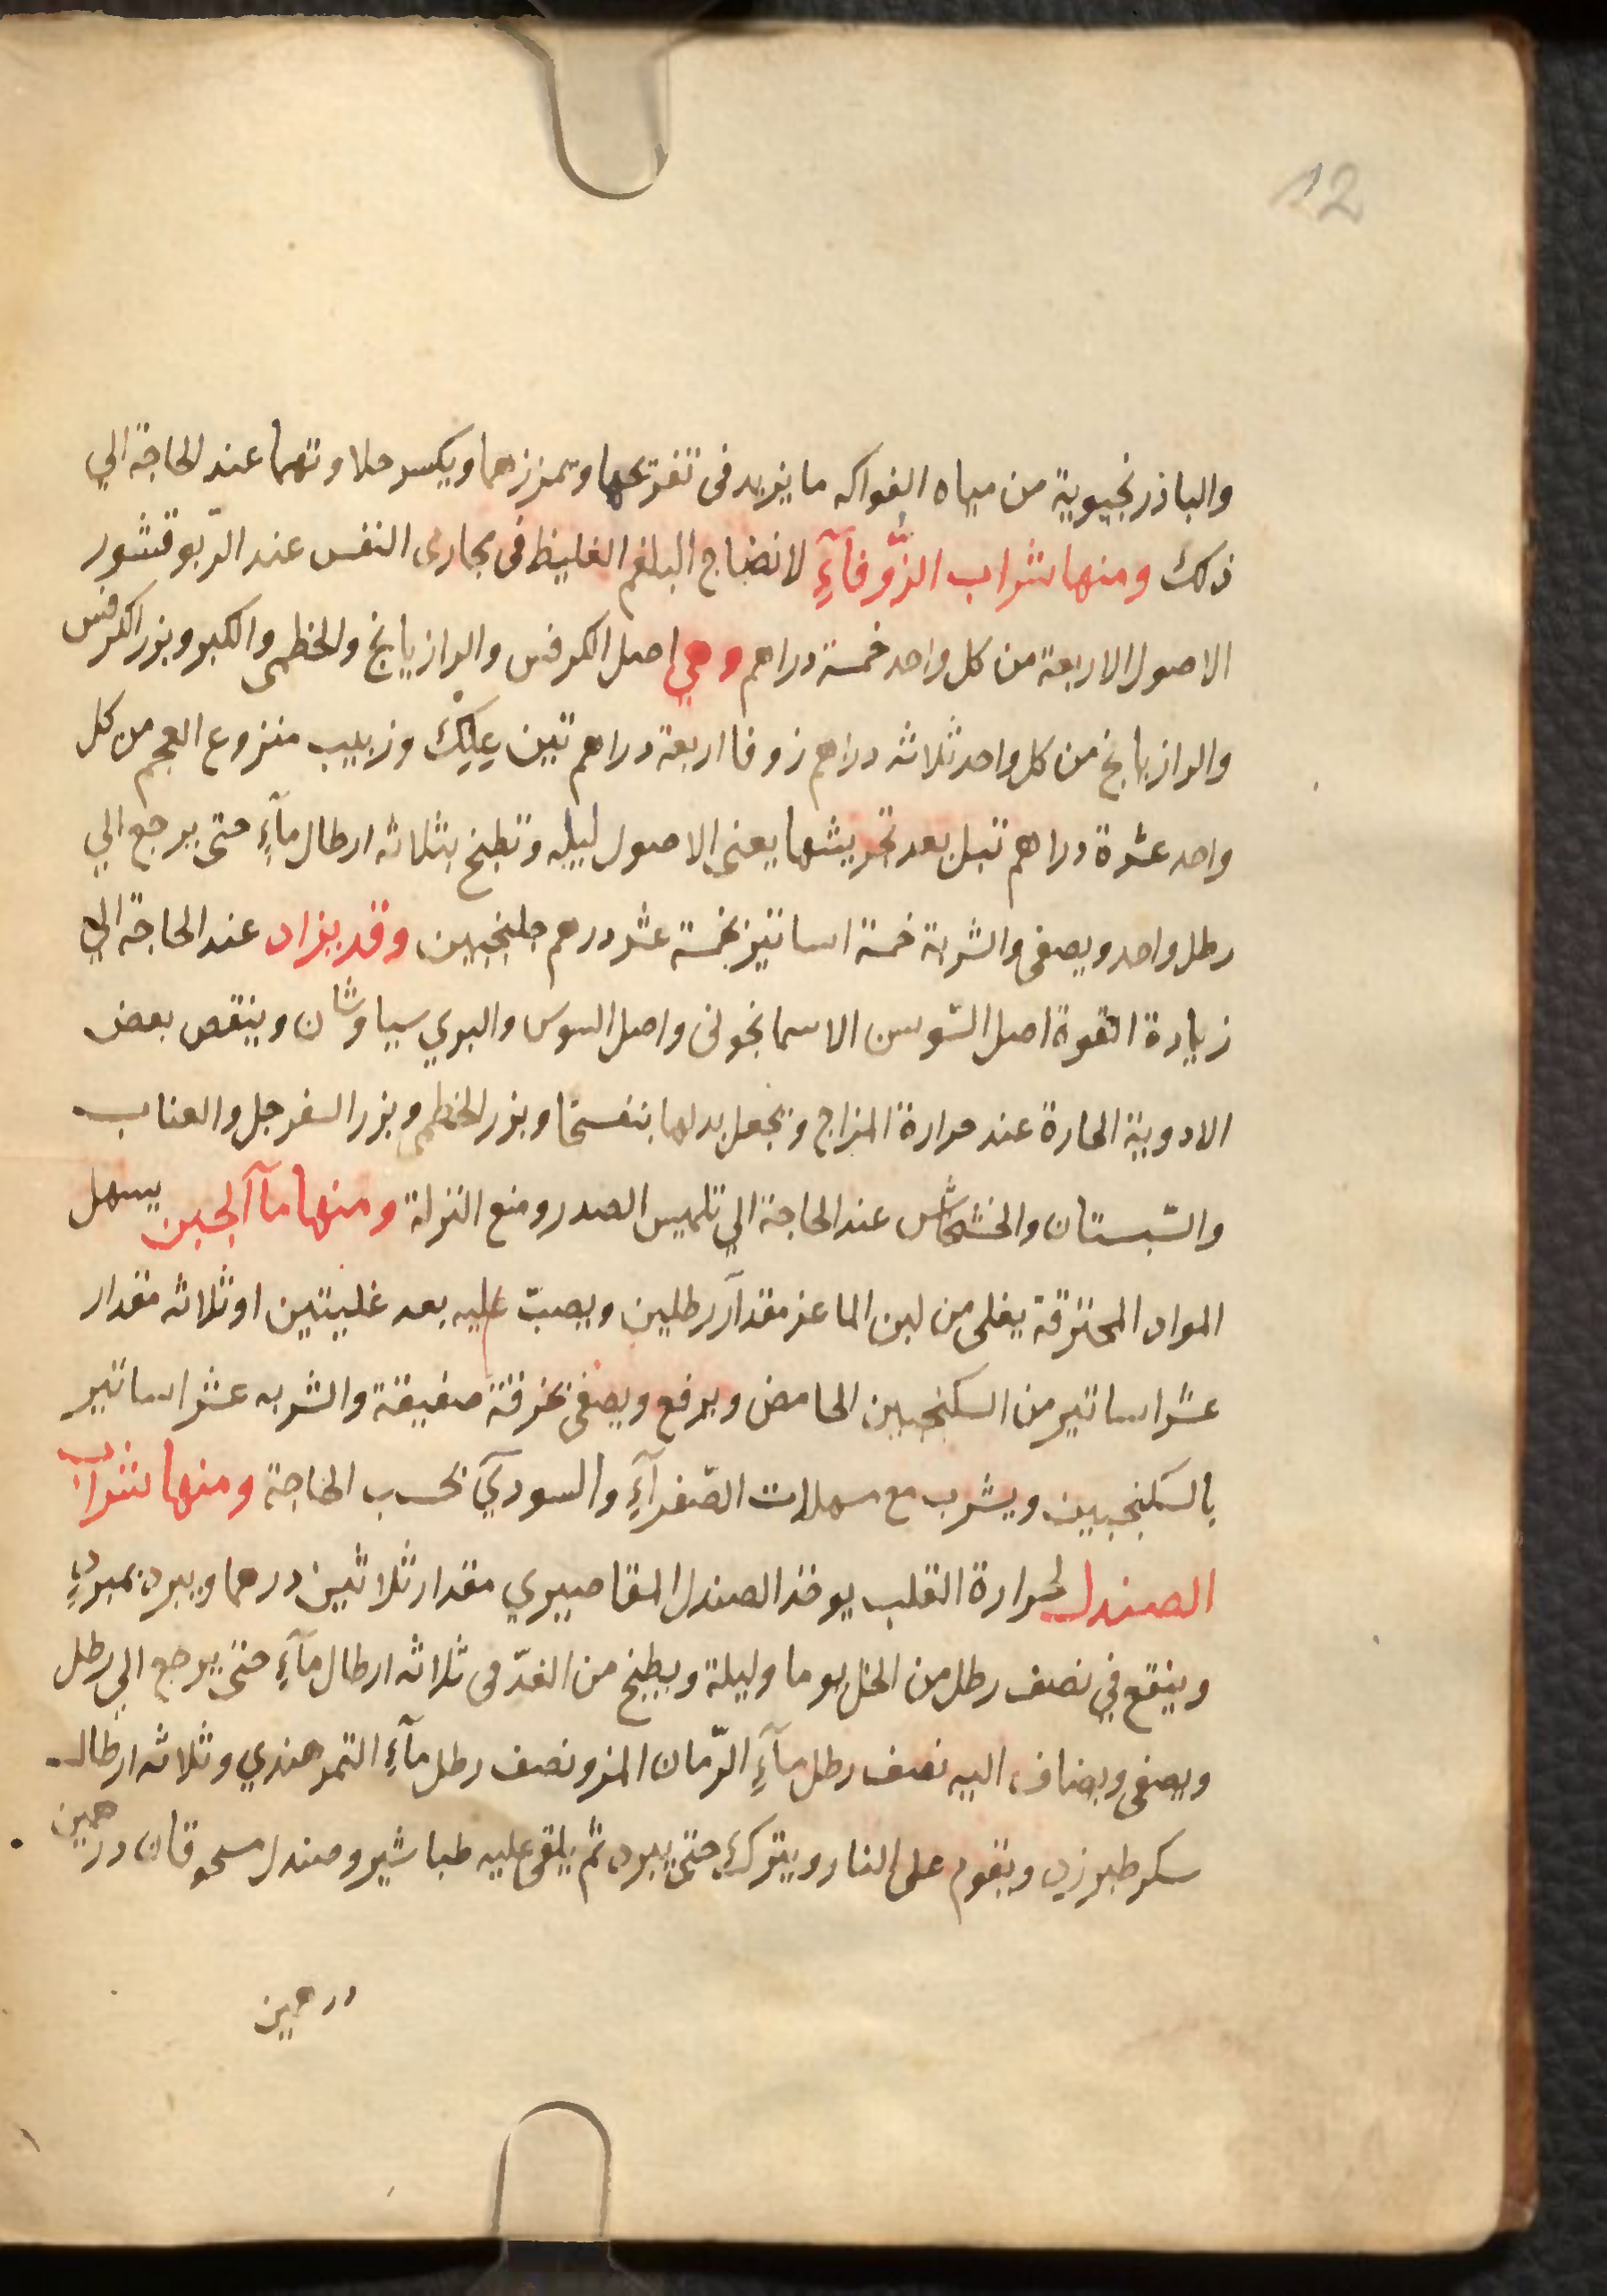 12
والباذرنجبوية من مياه الفواكه ما يزيد فى تفريحها وتمززهما ويكسر حلاوتهما عند الحاجة الي
ذلك ومنها شراب الزُّوفآءِ لانضاج البلغم الغليظ فى مجارى النفس عند الرّبو قشور
الاصول الاربعة من كل واحد خمسة دراهم وهي اصل الكرفس والرازيانج والخطمى والكبر وبزر الكرفس
والرازيانج من كل واحد ثلاثه دراهم زوفا اربعة دراهم تين عِلِك وزبيب منزوع العجم من كل
واحد عشرة دراهم تبل بعد تجريشها يعنى الاصول ليله وتطبخ بثلاثه ارطال مآءِ حتى يرجع الي
رطل واحد ويصفى والشربة خمسة اساتيز بخمسة عشر درهم جلنجبين وقد يزاد عند الحاجة الي
زيادة القوة اصل السّوسن الاسمانجونى واصل السوس والبري سياوشان وينقص بعض
الادوية الحارة عند حرارة المزاج وتجعل بدلها بنفسجا وبزر الخطمى وبزر السفرجل والعناب
والسّبستان والخشخاش عند الحاجة الي تلميس الصدر ومنع النزلة ومنها مآ الجبن يسهل
المواد المحترقة يغلى من لبن الماعز مقدار رطلين ويصبّ عليه بعد غليتين او ثلاثه مقدار
عشر اساتير من السكنجبين الحامض ويرفع ويصفى بخرقة صفيقة والشربه عشر اساتير
بالسكنجبين ويشرب مع مسهلات الصّفرآءِ والسودآي بحسب الحاجة ومنها شراب
الصندل لحرارة القلب يوخذ الصندل المقاصيري مقدار ثلاثين درهما ويبرد بمبردٍ
وينقع في نصف رطل من الخل يوما وليلة ويطبخ من الغدّ فى ثلاثه ارطال مآءِ حتى يرجع الي رطل
ويصفى ويضاف اليه نصف رطل مآءِ الرّمان المز ونصف رطل مآءِ التمر هندي وثلاثه ارطال
سكر طبرزد ويقوم على النار ويترك حتى يبرد ثم يلقى عليه طباشير وصندل مسحوقان درهمين
درهمين